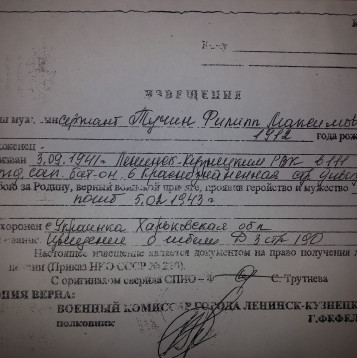 Кому
ИЗВЕЩЕНИЯ
сержант Тучин Филипп Максимов
1912 года рож
3.09.1941 Ленинск-Кузнецким РВК в 111
сап. бат-он. 6 Краснознаменная стр.
за Родину, верный проявив геройство и мужество
погиб 5.02 1943 г
хоронен с. Украинка Харьковская обл
Извещение о гибели Ф 3 стр 190
Настоящее извещение является документом на право получения
(Приказ НКО СССР №
С оригиналом сверила СПНО - 4 С. Трутнева
ОПИЯ ВЕРНА:
ВОЕННЫЙ КОМИССАР ГОРОДА ЛЕНИНСК-КУЗНЕЦК
полковник